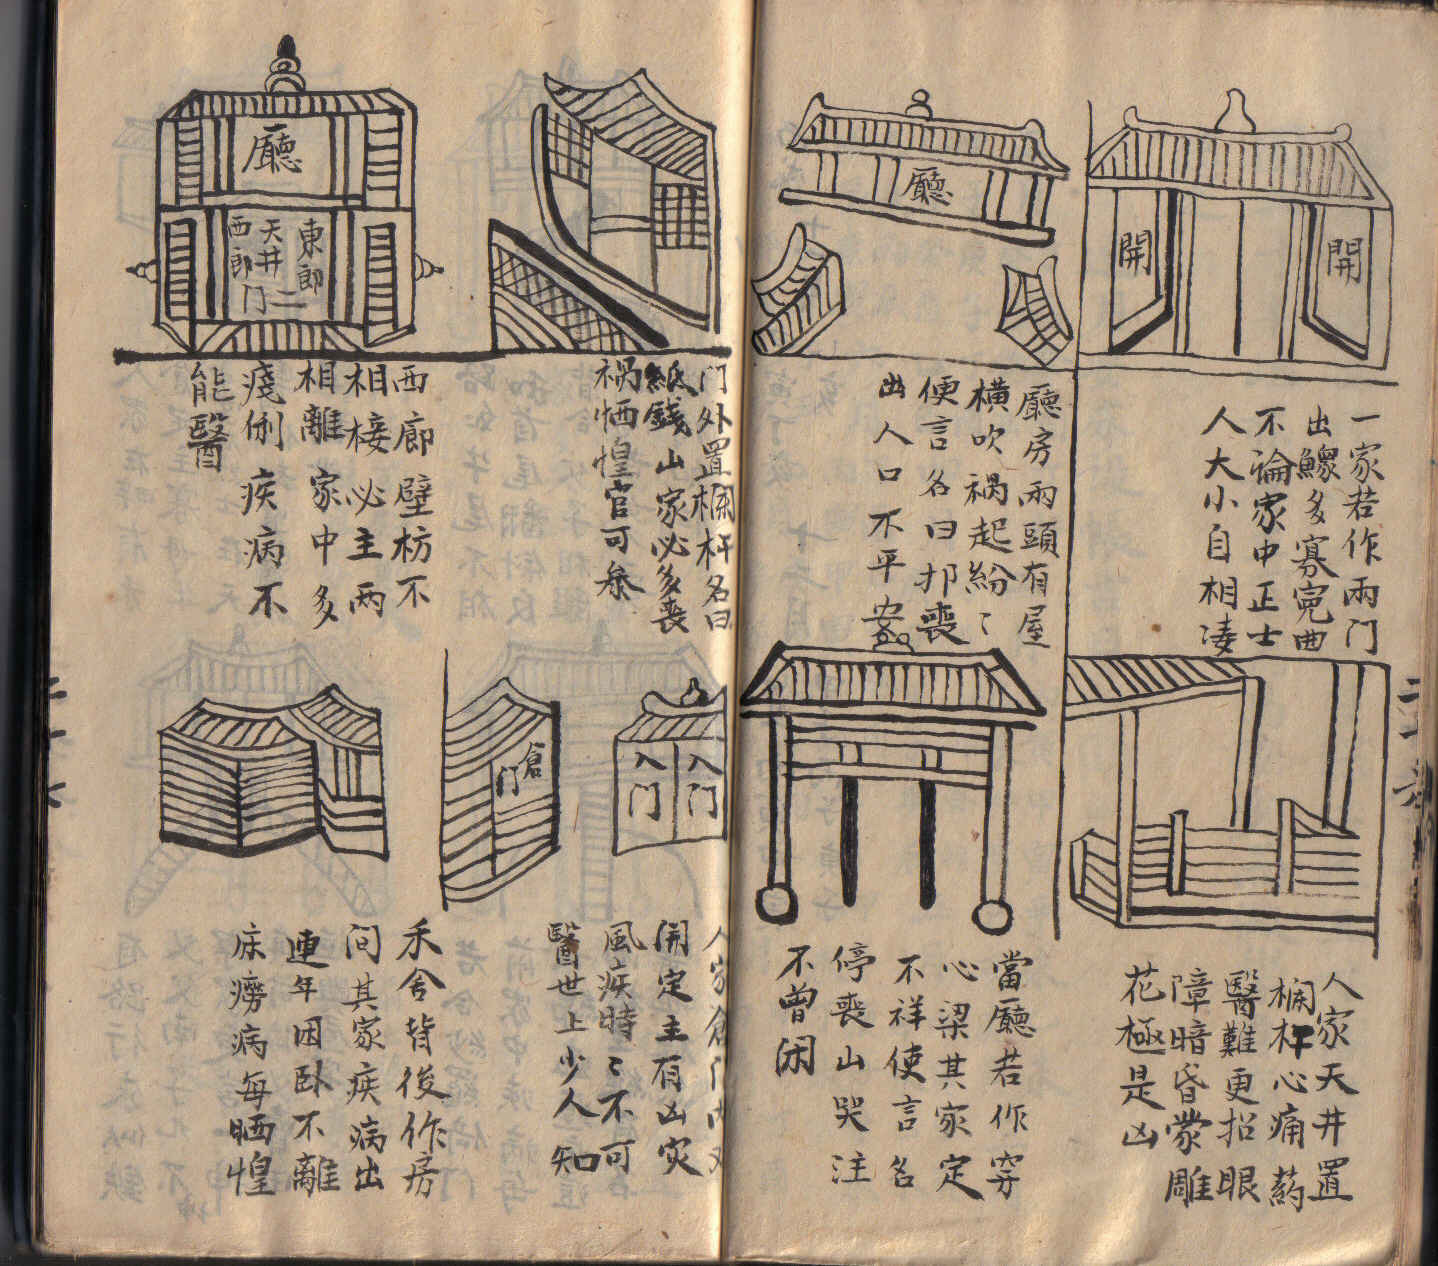 開
開
一家若作兩门
出鰥多寡寃曲
不論家中正士
人大小自相凌
廳
廳房兩頭有屋
横吹祸起紛〻
便言名曰邦喪
出人口不平安
人家天井置
欄杆心痛药
醫難更招眼
障暗昏蒙雕
花極是凶
當廳若作穿
心梁其家定
不祥使言名
停喪山哭注
不曾闲
门外置欄杆名曰
紙錢山家必多喪
祸恓惶官可叅
廳
東郎
天井二
西郎门
西廊壁枋不
相接必主两
相離家中多
癈俐疾病不
能醫
入门
入门
倉门
人家倉门内
開定主有凶灾
風疾時〻不可
醫世上少人知
禾舍背後作房
问其家疾病出
連年困卧不離
床癆病每恓惶
二十六